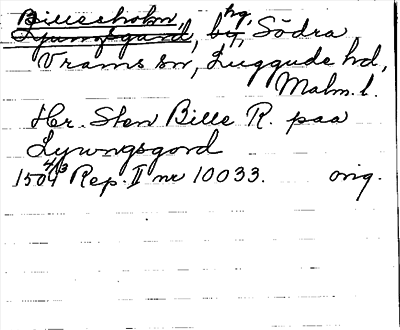 Billesholm
Ljungsgård, by, hg, Södra
Vrams sn, Luggude hd,
Malm. l.
Hr. Sten Bille R. paa
Lywngsgord
1504 4/3 Rep. II nr 10033. orig.